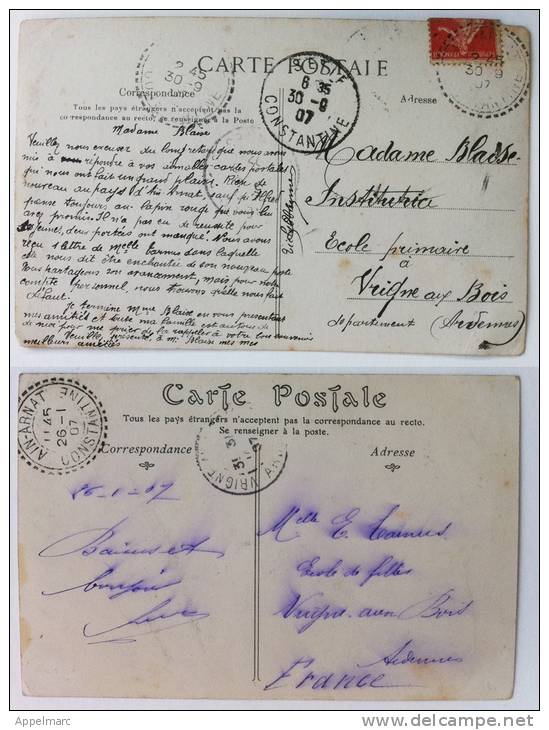 CARTE POSTALE
Correspondance
Adresse
Tous les pays étrangers n'acceptent pas la
correspondance au recto, se renseigner à la Poste
2 45
30 -9
SETIF
6 35
30 -9
07
CONSTANTINE
2 45
30 -9
07
Madame Blaise
Veuillez nous excuser du long retard que nous avons
mis à répondre à vos aimables cartes postales
qui nous ont fait un grand plaisir. Rien de
nouveau au pays d'Aïn Arnat, sauf qu'Alfred
pense toujours au lapin rouge que vous lui
avez promis. Il n'a pas eu de réussite pour
jeunes, deux portées ont manqué. Nous avons
reçu 1 lettre de Melle Camus dans laquelle
elle nous dit être enchantée de son nouveau poste
Nous partageons son avancement, mais pour notre
compte personnel, nous trouvons qu'elle nous fait
défaut.
Je termine Mme Blaise en vous présentant
mes amitiés et toute ma famille est autour
de moi pour me prier de la rappeler à votre bon souvenir
Veuillez présenter à Mr Blaise mes
meilleurs amitiés
Madame Blaise
Institutrice
Ecole primaire
à
Vrigne aux Bois
département (Ardennes)
Carte Postale
Tous les pays étrangers n'acceptent pas la correspondance au recto.
Se renseigner à la poste.
Correspondance
Adresse
AIN-ARNAT
11 45
26 -1
07
CONSTANTINE
VRIGNE
31
07
26-1-07
Baisers et
bonjour
Melle E. Camus
Ecole de filles
Vrigne aux Bois
Ardennes
France
© Appelmarc
delcampe.net